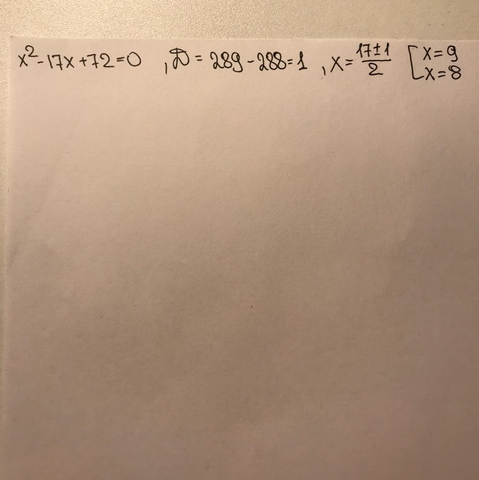 x²-17x+72=0 , D = 289-288=1 , x = (17±1)/2 [x=9
x=8